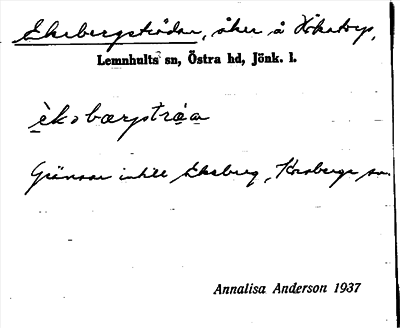 Eksbergsträdan, åker å Hökatorp,
Lemnhults sn, Östra hd, Jönk. l.
èksbærgstráa
Gränsar intill Eksberg, Korsberga sn.
Annalisa Anderson 1937